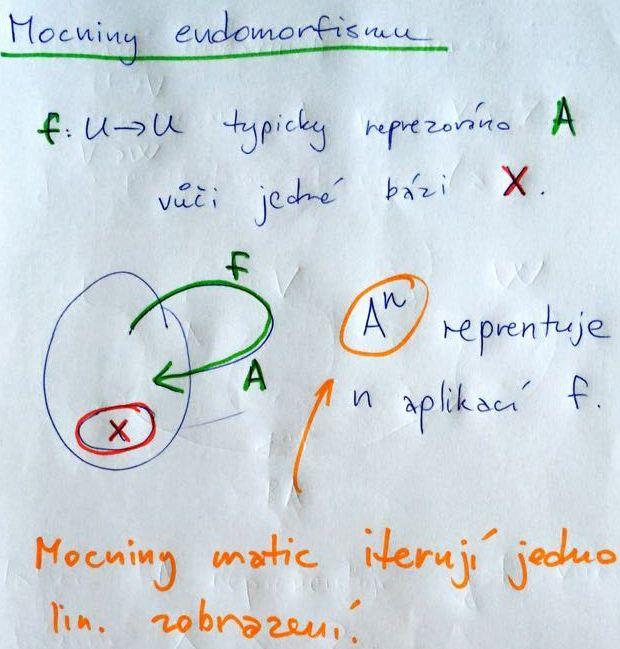 Mocniny endomorfismu
f: U→U typicky reprezováno A
vůči jedné bázi X.
f
A
X
Aⁿ reprentuje
n aplikací f.
Mocniny matic iterují jedno
lin. zobrazení.